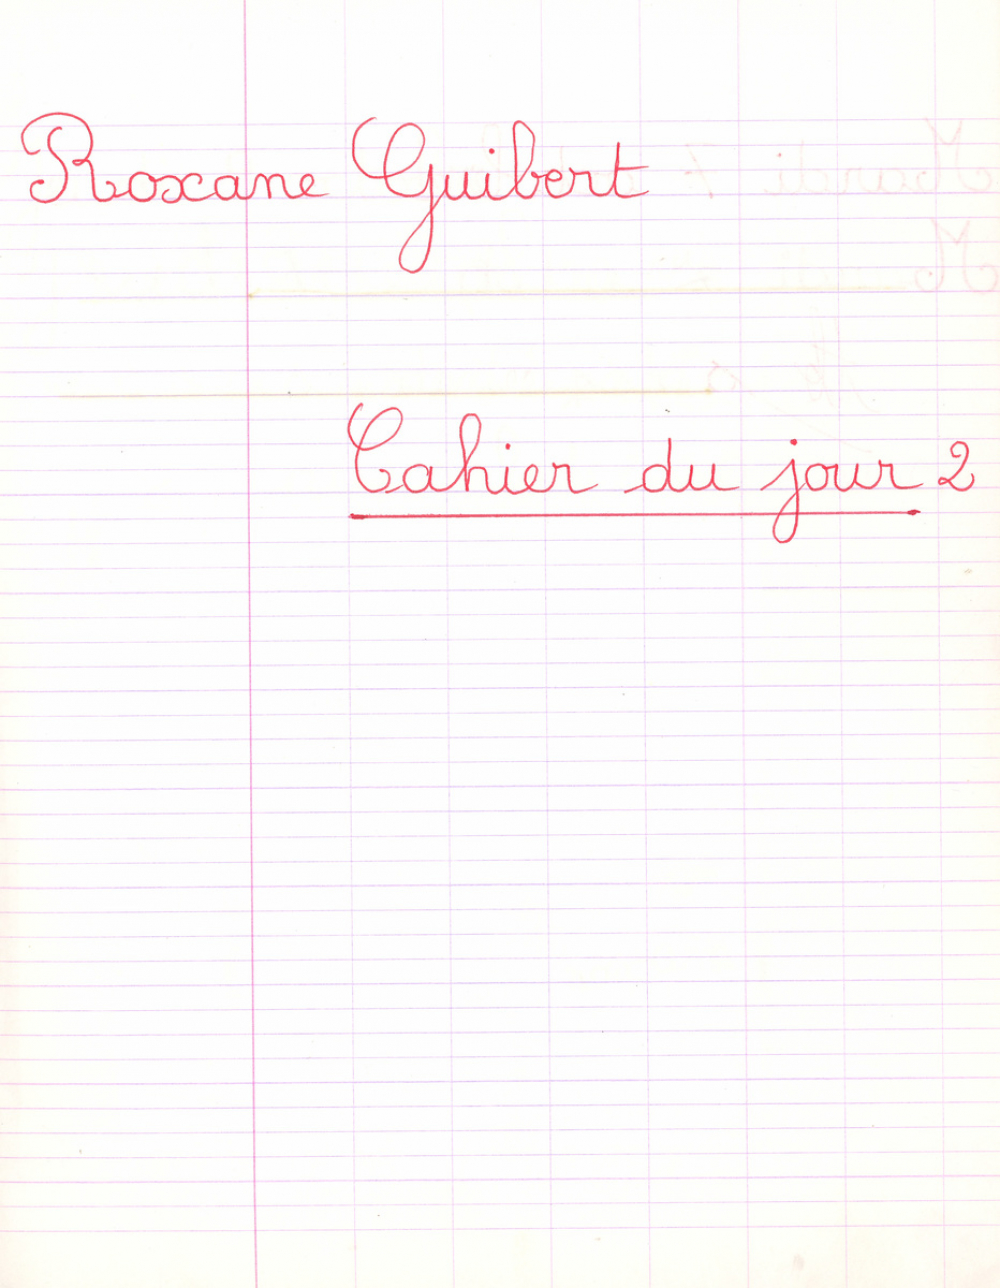 Roxane Guibert
Cahier du jour 2